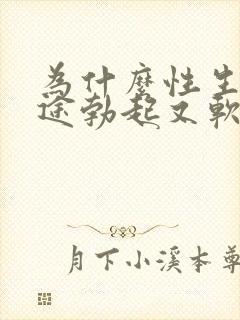 為什麼性生
途勃起又軟
月下小溪本尊